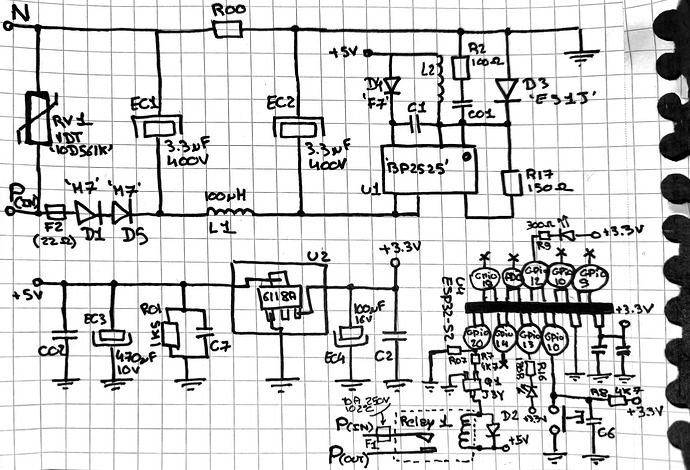 N
R00
+5V
R2
100Ω
L2
D4
'F7'
D3
'ES1J'
C1
C01
EC1
3.3µF
400V
EC2
3.3µF
400V
RV1
VDT
'10D561K'
'BP2525'
U1
R17
150Ω
P(IN)
'M7'
'M7'
F2
(22Ω)
D1
D5
100µH
L1
300Ω
R9
+3.3V
U2
+3.3V
U4
ESP32-S2
GPIO
19
ADC
GPIO
12
GPIO
10
GPIO
9
+5V
6118A
+3.3V
C02
EC3
470µF
10V
R01
1K5
C7
100µF
16V
EC4
C2
GPIO
20
GPIO
14
GPIO
13
GPIO
10
R07
R7
4K7
R16
Q1
J3Y
R8
4K7
+3.3V
+3.3V
C6
10A 250V
102°C
P(IN)
F1
Relay 1
D2
+5V
P(OUT)